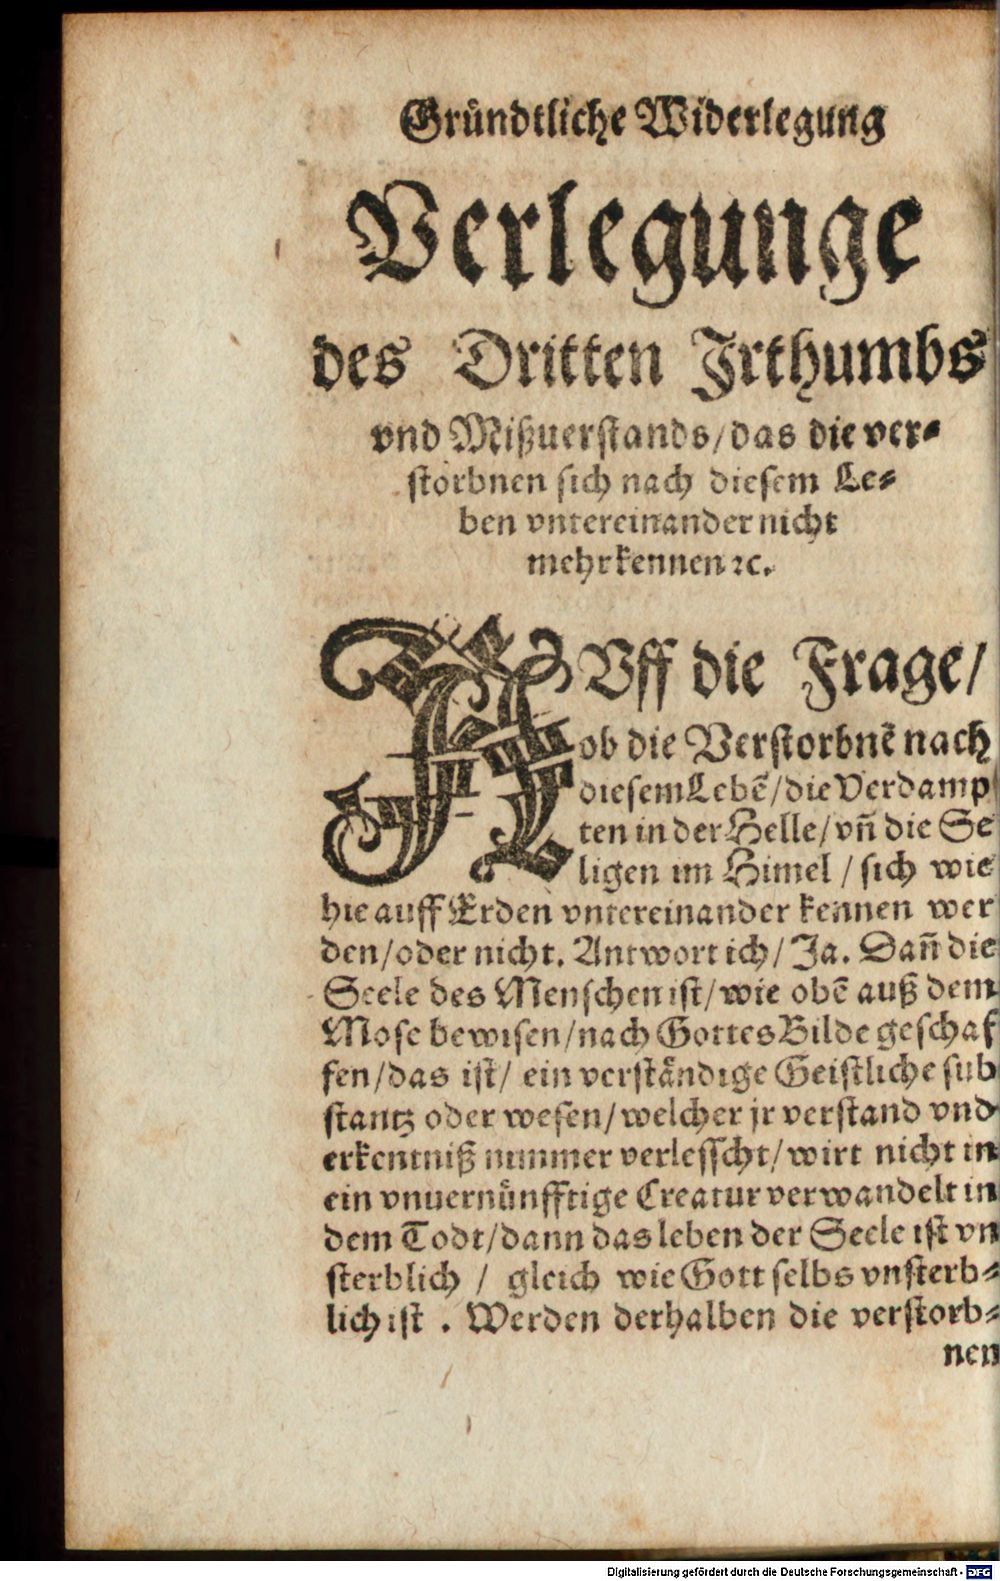 Gründtliche Widerlegung
Verlegunge
des Dritten Irthumbs
vnd Mißuerstands/das die ver⸗
storbnen sich nach diesem Le⸗
ben vntereinander nicht
mehr kennen ꝛc.
AVff die Frage/
ob die Verstorbnẽ nach
diesem Lebẽ/die Verdamp
ten in der Helle/vñ die Se
ligen im Himel / sich wie
hie auff Erden vntereinander kennen wer
den/oder nicht. Antwort ich/ Ja. Dañ die
Seele des Menschen ist/wie obẽ auß dem
Mose bewisen/nach Gottes Bilde geschaf
fen/das ist/ ein verständige Geistliche sub
stantz oder wesen/welcher jr verstand vnd
erkentniß nimmer verlesscht/wirt nicht in
ein vnuernünfftige Creatur verwandelt in
dem Todt/dann das leben der Seele ist vn
sterblich / gleich wie Gott selbs vnsterb⸗
lich ist . Werden derhalben die verstorb⸗
nen
Digitalisierung gefördert durch die Deutsche Forschungsgemeinschaft - DFG